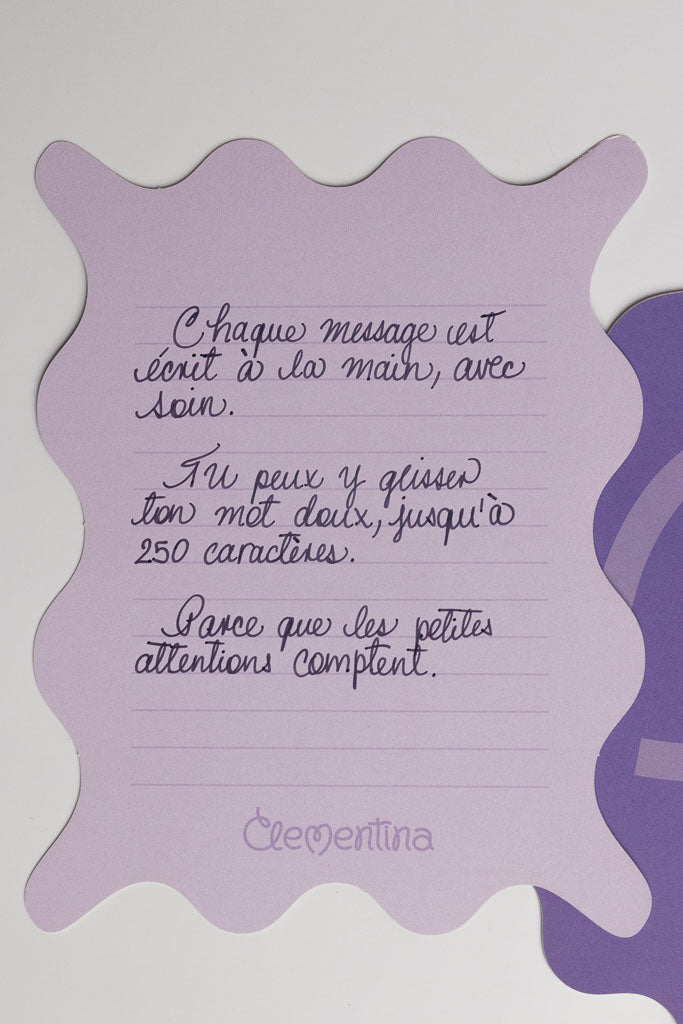 Chaque message est
écrit à la main, avec
soin.
Tu peux y glisser
ton mot doux, jusqu'à
250 caractères.
Parce que les petites
attentions comptent.
Clementina